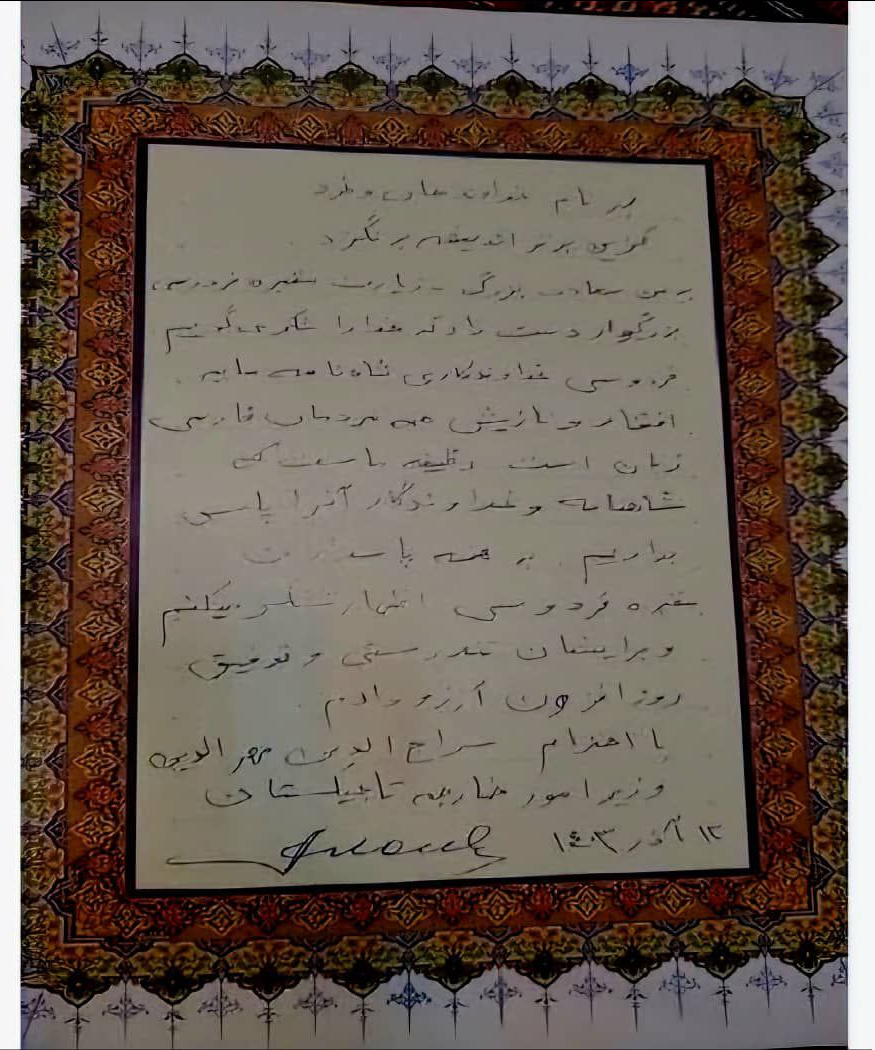 به نام خداوند جان و خرد
کزین برتر اندیشه برنگذرد
بر من سعادت بزرگ زیارت مقبره فردوسی
بزرگوار دست داد که خدا را شکر می گویم
فردوسی خداوندکاری شاه نامه مایه
افتخار و نازش همه مردمان فارسی
زبان است وظیفه ما است که
شاهنامه و خداوندگار آنرا پاس
بداریم به همه پاسداران
مقبره فردوسی اظهار تشکر میکنم
و برایشان تندرستی و توفیق
روز افزون آرزو دارم
با احترام سراج الدین مهر الدین
وزیر امور خارجه تاجیکستان
۱۲ آذر ۱۴۰۳